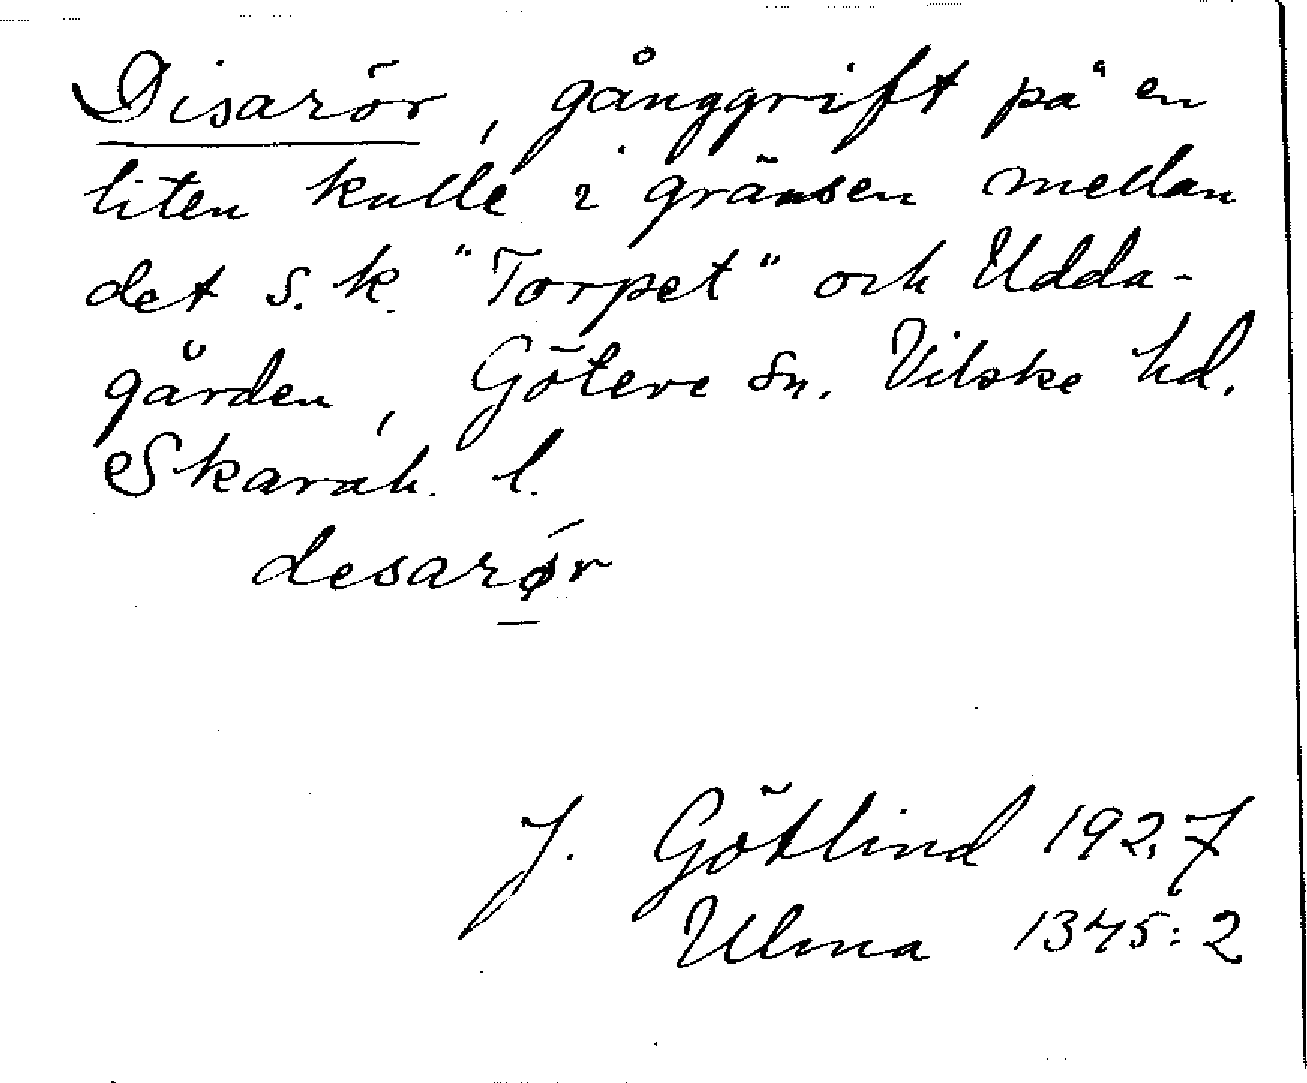 Disarör, gånggrift på en
liten kulle i gränsen mellan
det s.k. "Torpet" och Udda-
gården, Götere sn. Vilske hd.
Skarab. l.
desarǿr
J. Götlind 1927
Ulma 1345:2